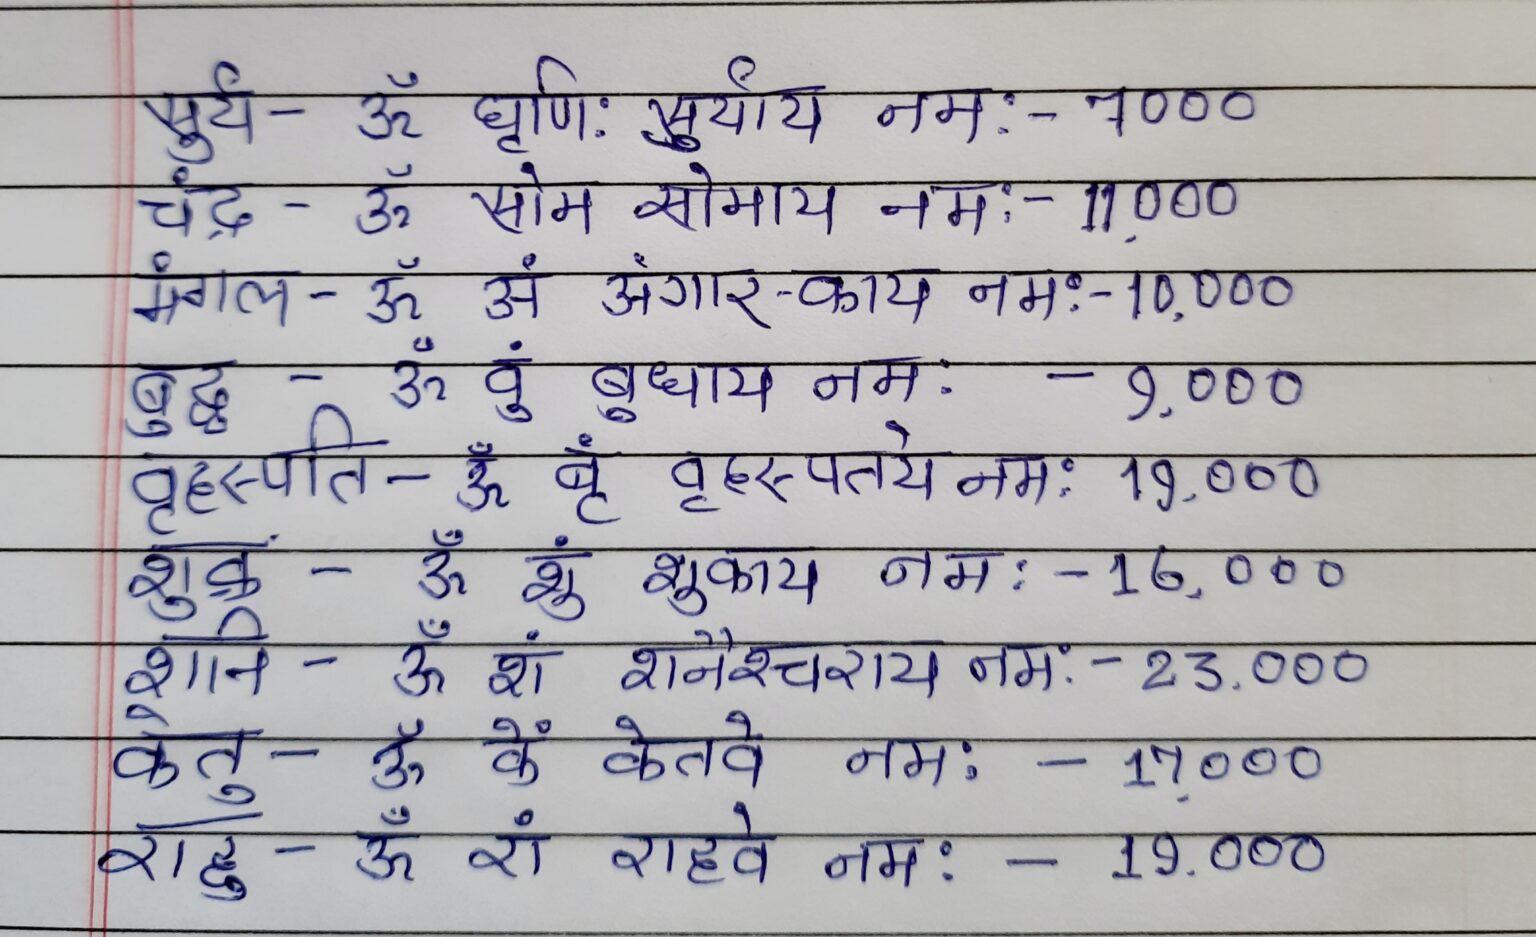 सुर्य - ॐ घृणि: सुर्याय नम: - 7000
चंद्र - ॐ सोम सोमाय नम: - 11,000
मंगल - ॐ अं अंगार-काय नम: - 10,000
बुद्ध - ॐ वुं बुधाय नम: - 9,000
वृहस्पति - ॐ बृं वृहस्पतये नम: 19,000
शुक्रं - ॐ शुं शुकाय नम: - 16,000
शनि - ॐ शं शनैश्चराय नम: - 23.000
केतु - ॐ कें केतवे नम: - 17,000
राहु - ॐ रां राहवे नम: - 19.000